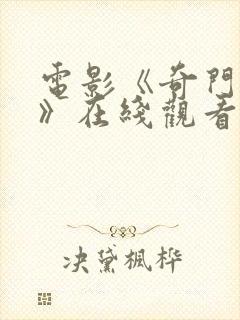 電影《奇門
》在綫觀看
决黛楓桦